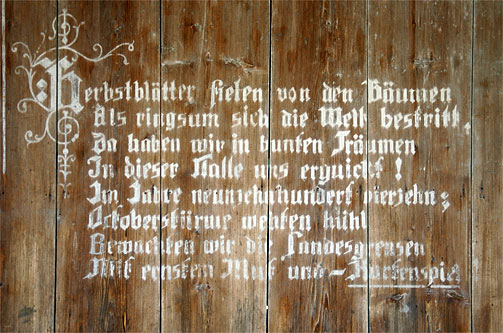 Herbstblätter fielen von den Bäumen
Als ringsum sich die Welt bestritt,
Da haben wir in bunten Träumen
In dieser Halle uns erquickt!
Im Jahre neunzehnhundert vierzehn;
Octoberstürme wehten kühl
Bewachten wir die Landesgrenzen
Mit ernstem Mut und – Kartenspiel!